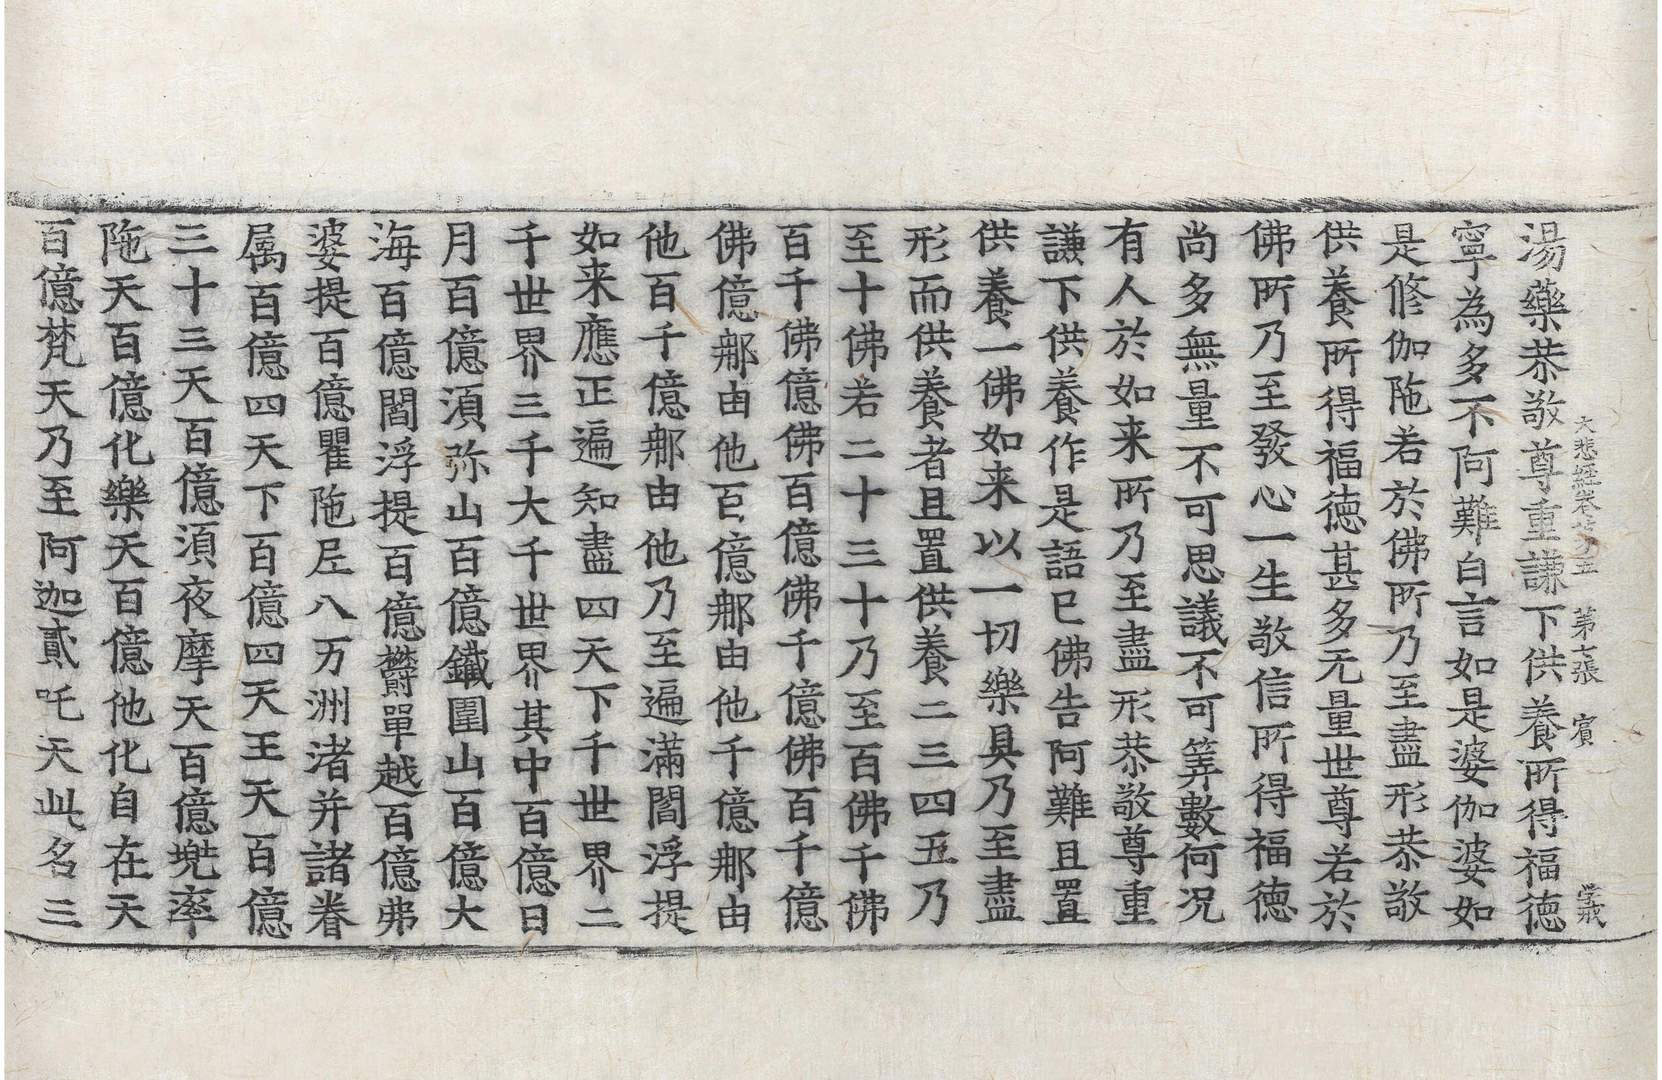 大悲經卷第五　第七張　賓　學戒
湯藥恭敬尊重謙下供養所得福德
寧為多不阿難白言如是婆伽婆如
是修伽陁若於佛所乃至盡形恭敬
供養所得福德甚多无量世尊若於
佛所乃至發心一生敬信所得福德
尚多無量不可思議不可筭數何況
有人於如来所乃至盡形恭敬尊重
謙下供養作是語已佛告阿難且置
供養一佛如来以一切樂具乃至盡
形而供養者且置供養二三四五乃
至十佛若二十三十乃至百佛千佛
百千佛億佛百億佛千億佛百千億
佛億那由他百億那由他千億那由
他百千億那由他乃至遍滿閻浮提
如来應正遍知盡四天下千世界二
千世界三千大千世界其中百億日
月百億湏弥山百億鐵圍山百億大
海百億閻浮提百億欝單越百億弗
婆提百億瞿陁尼八万洲渚并諸眷
属百億四天下百億四天王天百億
三十三天百億湏夜摩天百億兠率
陁天百億化樂天百億他化自在天
百億梵天乃至阿迦貳吒天此名三